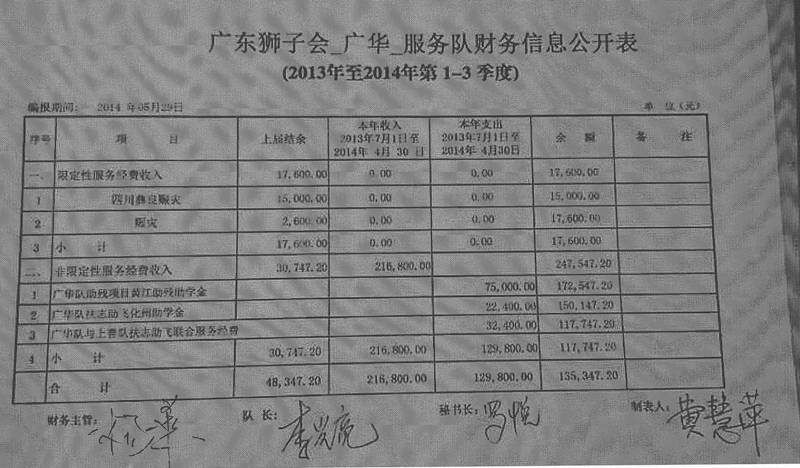 广东狮子会_广华_服务队财务信息公开表
(2013年至2014年第 1-3 季度)
编报期间: 2014 年05月29日 单 位(元)
序号 项 目 上届结余 本年收入 2013年7月1日至 2014年 4月 30 日 本年支出 2013年7月1日至 2014年 4月30日 余 额 备 注
一、 限定性服务经费收入 17,600.00 0.00 0.00 17,600.00
1 四川彝良赈灾 15,000.00 0.00 0.00 15,000.00
2 赈灾 2,600.00 0.00 0.00 17,600.00
3 小 计 17,600.00 0.00 0.00 17,600.00
二、 非限定性服务经费收入 30,747.20 216,800.00 247,547.20
1 广华队助残项目黄江助残助学金 75,000.00 172,547.20
2 广华队扶志助飞化州助学金 22,400.00 150,147.20
3 广华队与上善队扶志助飞联合服务经费 32,400.00 117,747.20
4 小 计 30,747.20 216,800.00 129,800.00 117,747.20
合 计 48,347.20 216,800.00 129,800.00 135,347.20
财务主管: 队 长: 秘书长: 罗悦 制表人: 黄慧萍